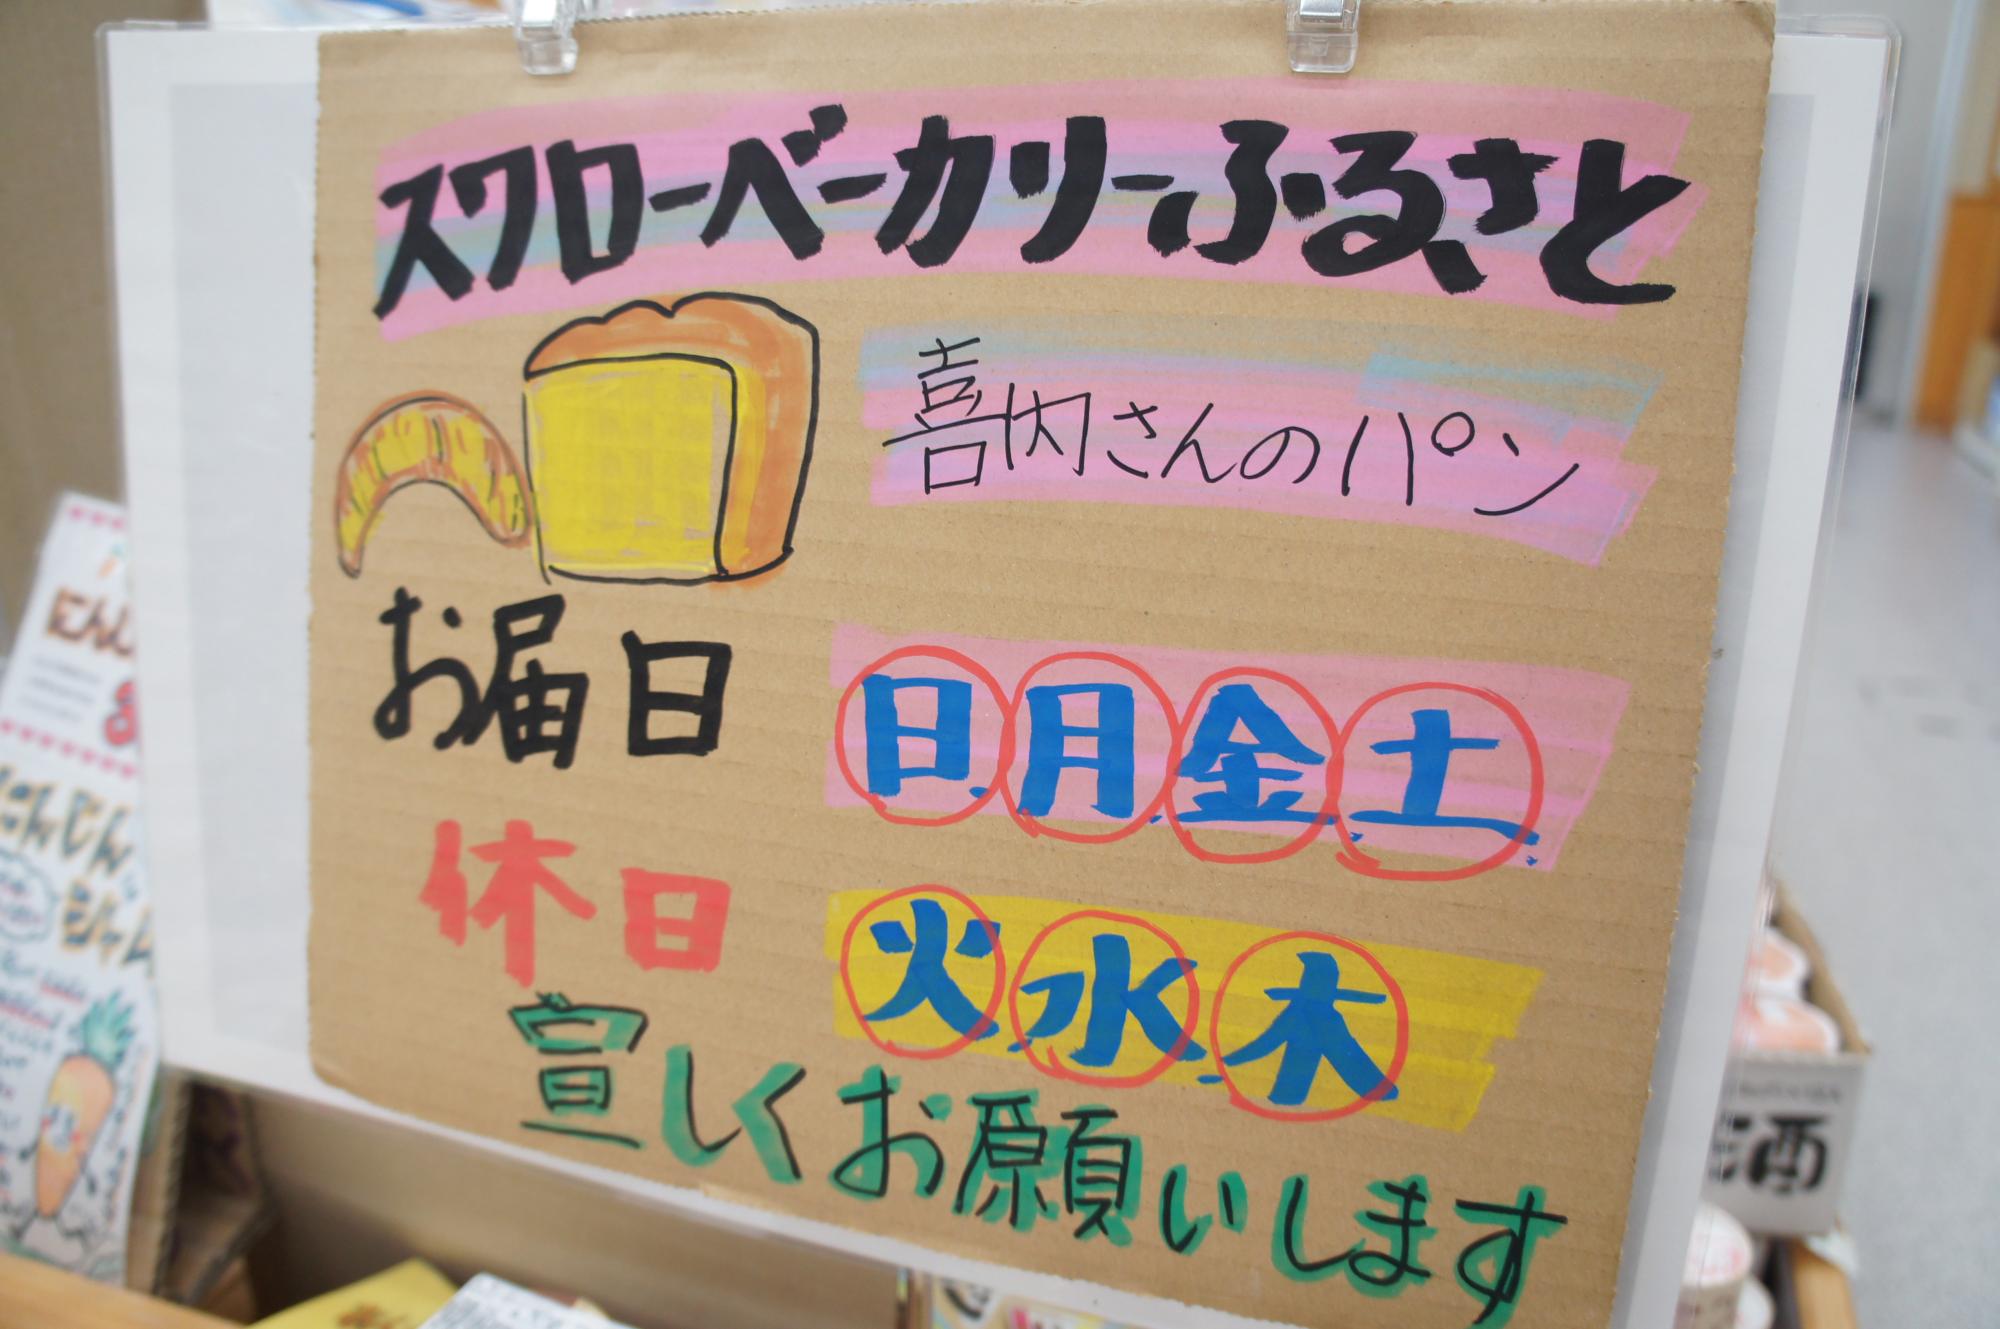 スワローベーカリーふるさと
喜内さんのパン
お届日
日月金土
休日
火水木
宜しくお願いします
にんじん
ジャム
酒